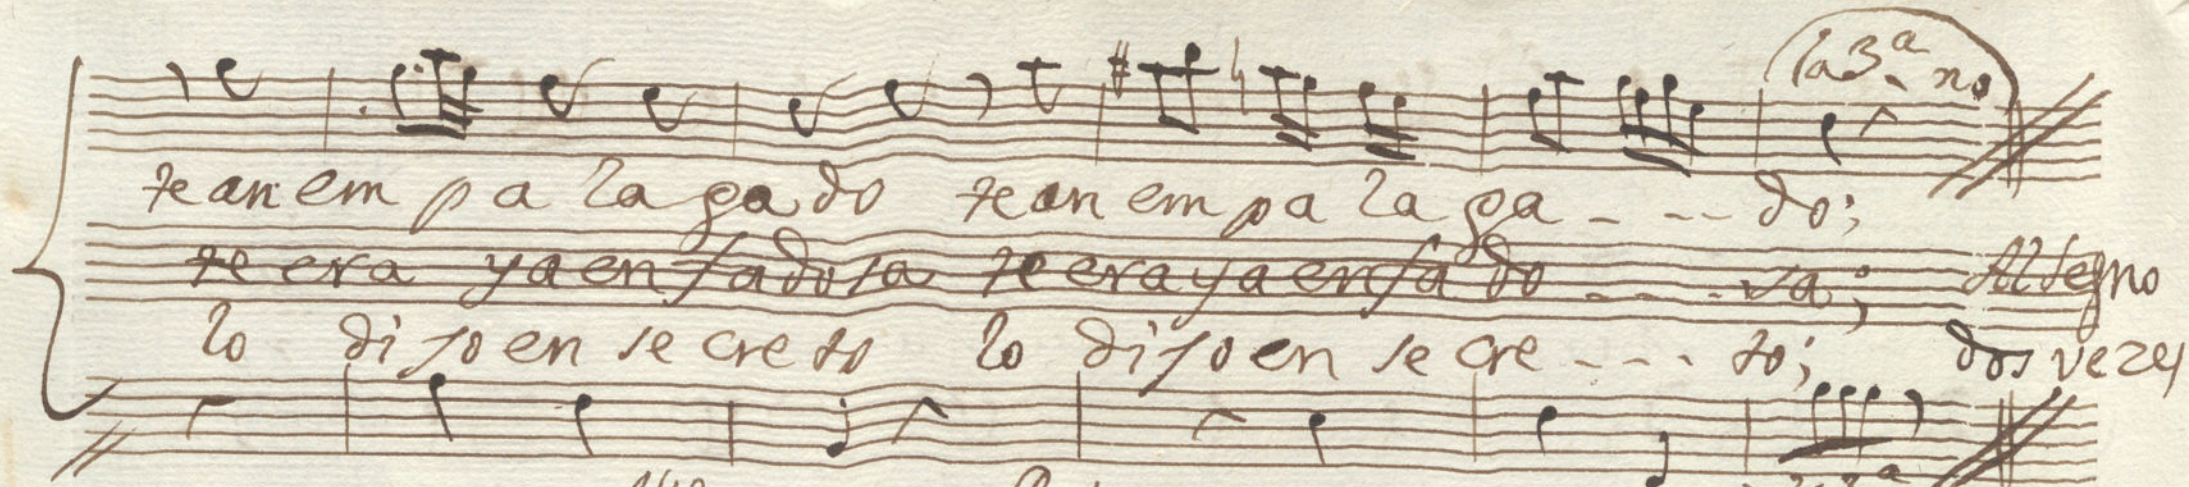 la 3.ª no
te an em pa la ga do te an em pa la ga - - - - do;
te era ya en fa do sa te era ya en fa do - - - sa; Al Segno
lo di jo en se cre to lo di jo en se cre - - - - to; dos vezes